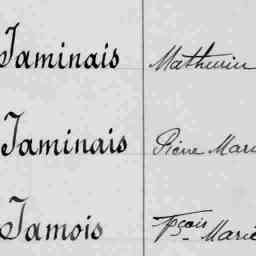 Jaminais Mathurin
Jaminais Pierre Marie
Jamois Fçois Marie